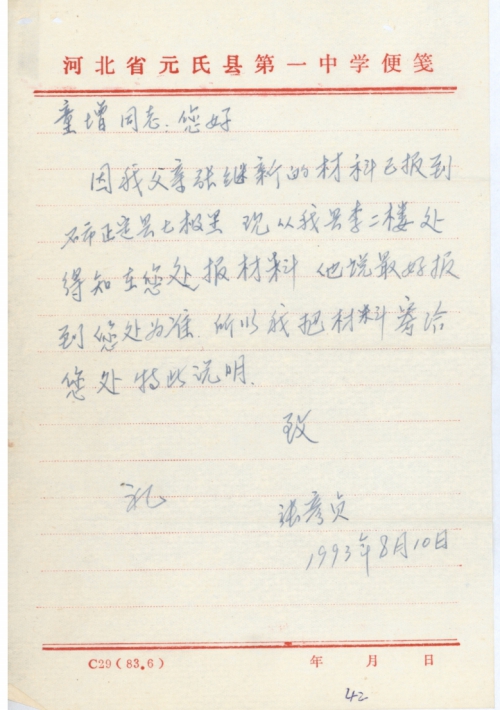 河北省元氏县第一中学便笺
童增同志：您好
因我父亲张继新的材料已报到
石市正定县七极里 现从我县李二楼处
得知在您处报材料 他说最好报
到您处为准.所以我把材料寄给
您处 特此说明.
致
礼
张彦贞
1993年8月10日
C29(83.6) 年 月 日
42